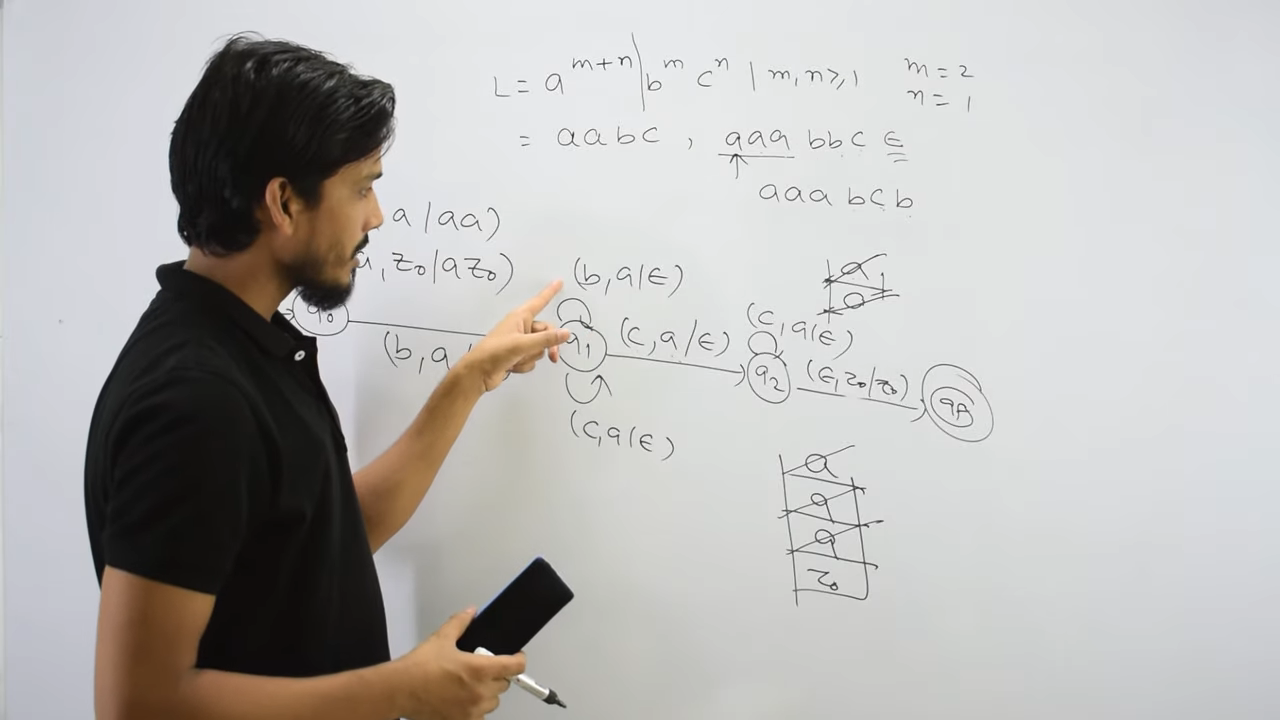 L = a^{m+n} | b^m c^n | m,n ≥ 1
m = 2
n = 1
= aabc , aaa bbc ∈
aaa bcb
a / aa)
a, z₀ / a z₀)
(b, a / ε)
q₀
(b, a /
q₁
(c, a / ε)
(c, a / ε)
q₂
(ε, z₀ / z₀)
(c, a / ε)
a
a
a
a
a
z₀